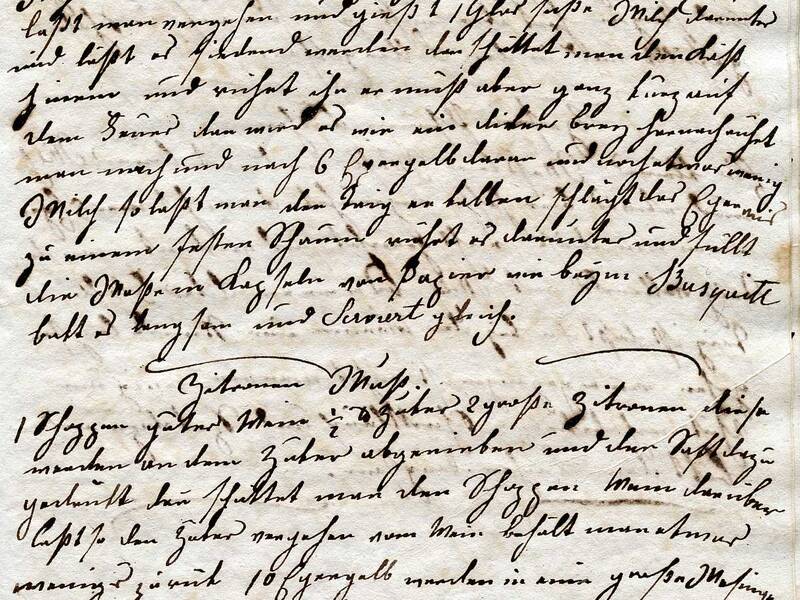 laßt man vergehen und gießt 1 Glas süße Milch darunter
und läßt es siedend werden dan schüttet man den Käß
hinein und rührt ihn er muß aber ganz kurz auf
dem Feuer dan wird es wie ein diker brey hernach rührt
man nach und nach 6 Eyergelb daran und noch etwas wenig
Milch so laßt man den Teig erkalten schlächt das Eyerweis
zu einem festen Schaum rührt es darunter und füllt
die Maße in Kapseln von Papier wie beym Busquitt
bakt es langsam und Serviert gleich.
Zitronen Muß.
1 Schoppen guter Wein ½ ℔ Zuker 2 große Zitronen diese
werden an dem Zuker abgerieben und der Saft dazu
gedrükt dan schüttet man den Schoppen Wein darüber
laßt so den Zuker vergehen vom Wein behält man etwas
weniges zurük 10 Eyergelb werden in eine große Mesing